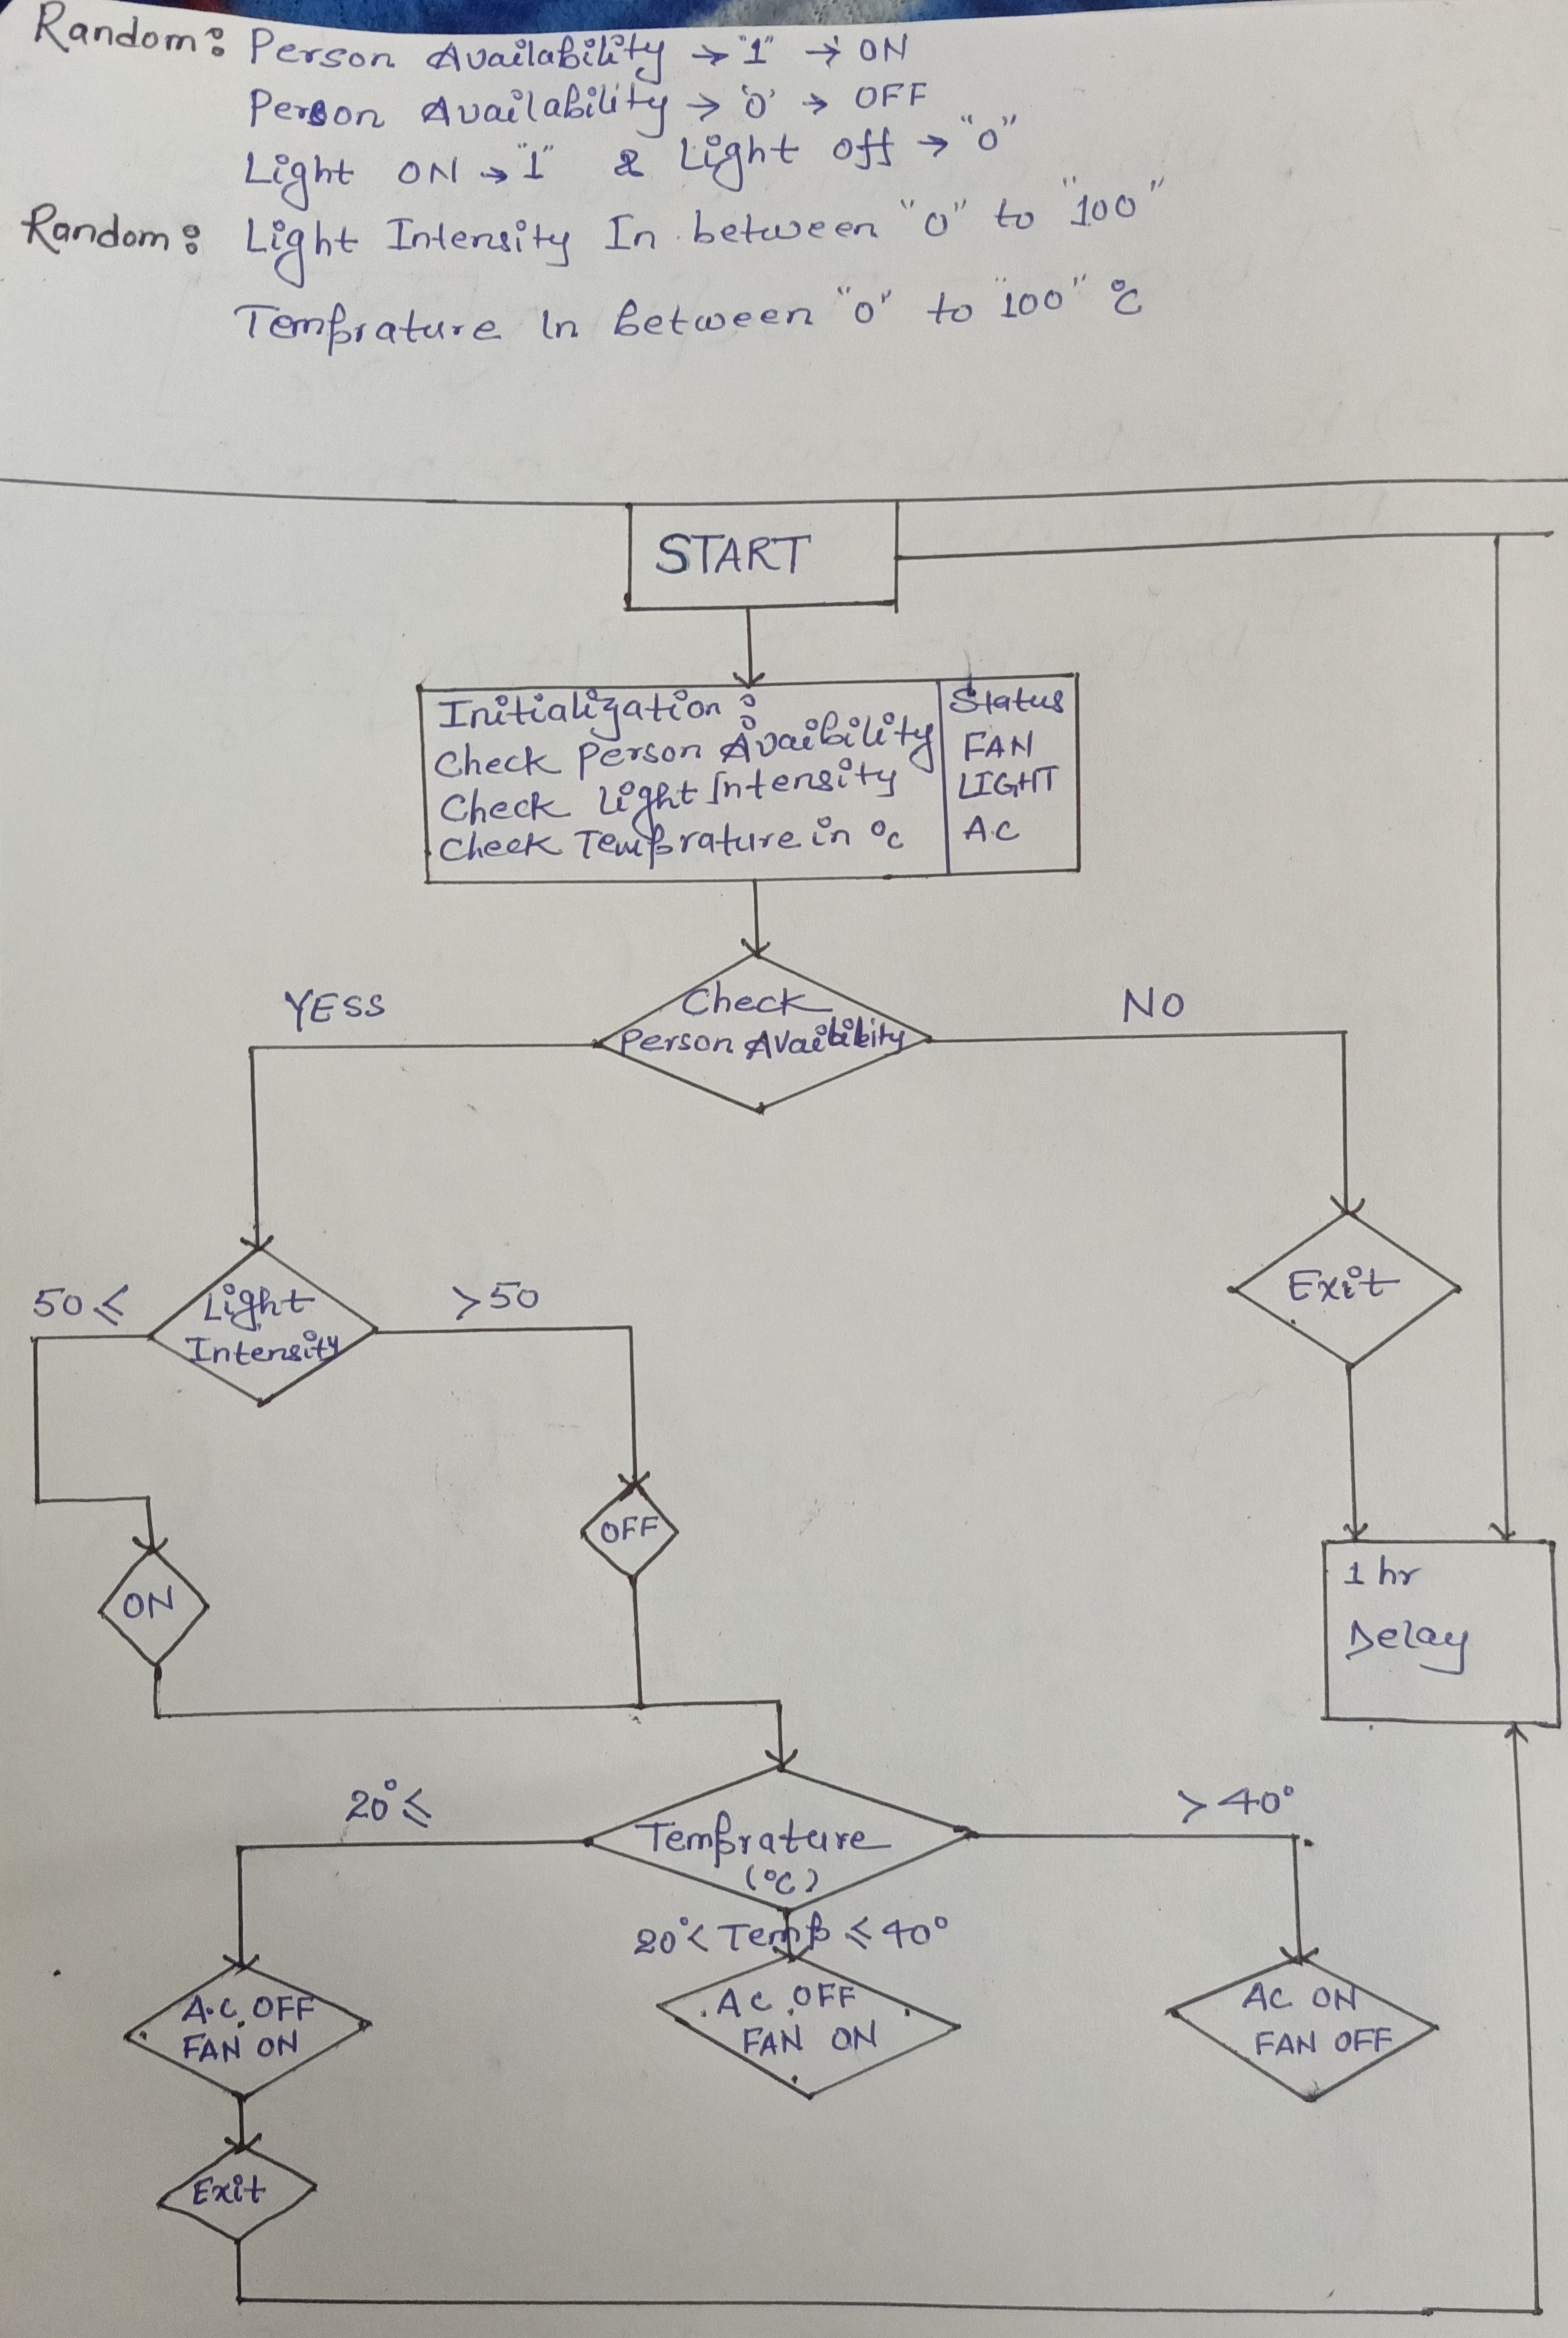 Random: Person Availability → "1" → ON
Person Availability → '0' → OFF
Light ON → "1" & Light off → "0"
Random: Light Intensity In between "0" to "100"
Temprature In between "0" to "100" °C
START
Initialization:
Check Person Avaibility
Check Light Intensity
Check Temprature in °c
Status
FAN
LIGHT
A.C
Check
Person Avaibility
YESS
NO
Light
Intensity
50 ≤
>50
Exit
OFF
ON
1 hr
Delay
Temprature
(°C)
20° ≤
> 40°
20° < Temp ≤ 40°
A.C. OFF
FAN ON
AC OFF
FAN ON
AC ON
FAN OFF
Exit